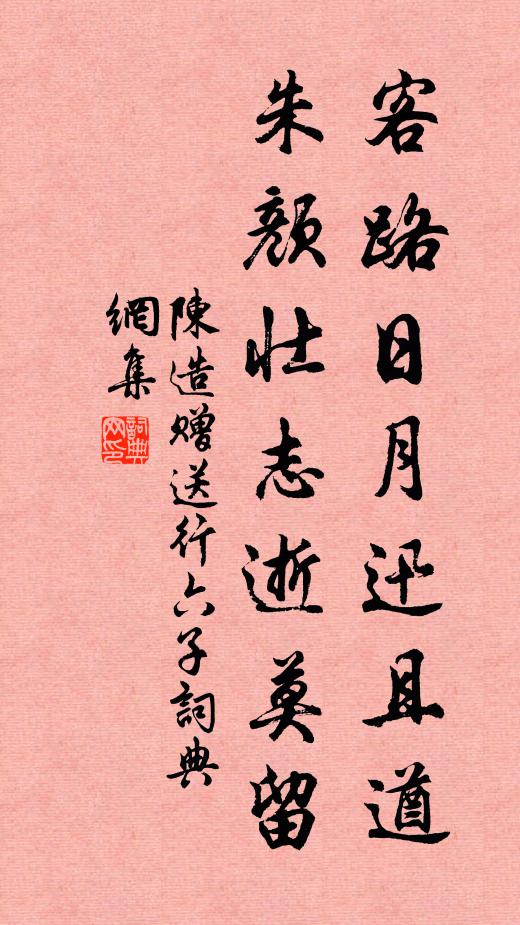 客路日月迅且遒
朱顏壮志逝莫留
陳造贈送行六子詞典
網集
詞典網印